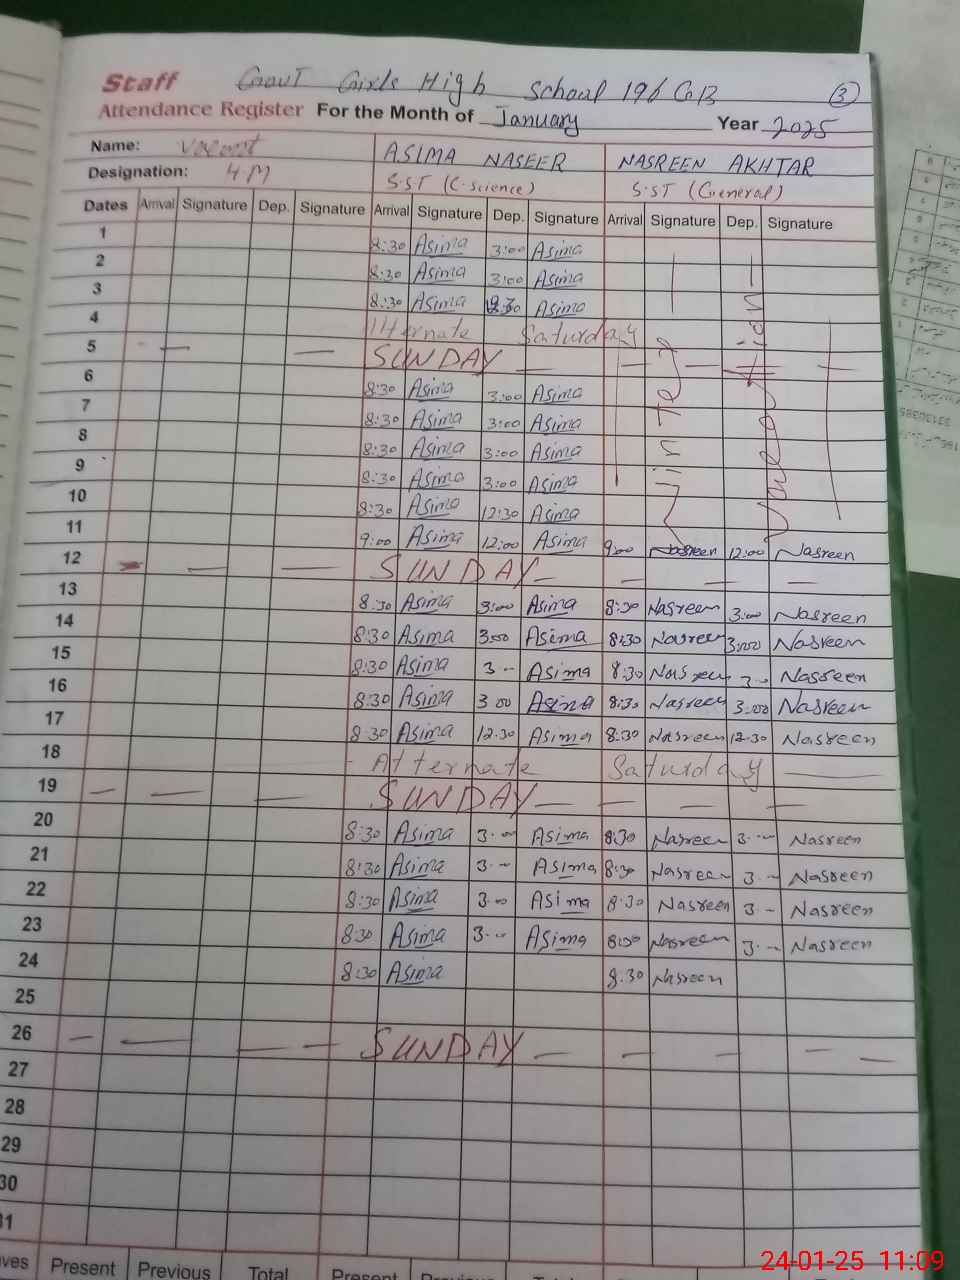 Staff Govt Girls High School 196 G.B 3
Attendance Register For the Month of January Year 2025
Name: Vacant ASIMA NASEER NASREEN AKHTAR
Designation: S.ST (C.science) S.ST (General)
Dates Arrival Signature Dep. Signature Arrival Signature Dep. Signature Arrival Signature Dep. Signature
1 8:30 Asima 3:00 Asima
2 8:30 Asima 3:00 Asima
3 8:30 Asima Asima
4 Alternate Saturday
5 SUNDAY
6 8:30 Asima 3:00 Asima
7 8:30 Asima 3:00 Asima
8 8:30 Asima 3:00 Asima
9 8:30 Asima 3:00 Asima
10 8:30 Asima 12:30 Asima
Winter Vacation
11 9:00 Asima 12:00 Asima 9:00 Nasreen 12:00 Nasreen
12 SUNDAY
13 8:30 Asima 3:00 Asima 8:30 Nasreen 3:00 Nasreen
14 8:30 Asima 3:00 Asima 8:30 Nasreen 3:00 Nasreen
15 8:30 Asima 3 -- Asima 8:30 Nasreen 3 -- Nasreen
16 8:30 Asima 3 00 Asima 8:30 Nasreen 3:00 Nasreen
17 8:30 Asima 12.30 Asima 8:30 Nasreen 12.30 Nasreen
18 Alternate Saturday
19 SUNDAY
20 8:30 Asima 3·-- Asima 8:30 Nasreen 3·-- Nasreen
21 8:30 Asima 3·-- Asima 8:30 Nasreen 3·-- Nasreen
22 8:30 Asima 3·00 Asima 8:30 Nasreen 3·-- Nasreen
23 8:30 Asima 3·-- Asima 8:30 Nasreen 3·-- Nasreen
24 8:30 Asima 8.30 Nasreen
25
26 SUNDAY
27
28
29
30
31
Present Previous Total Present
24-01-25 11:09